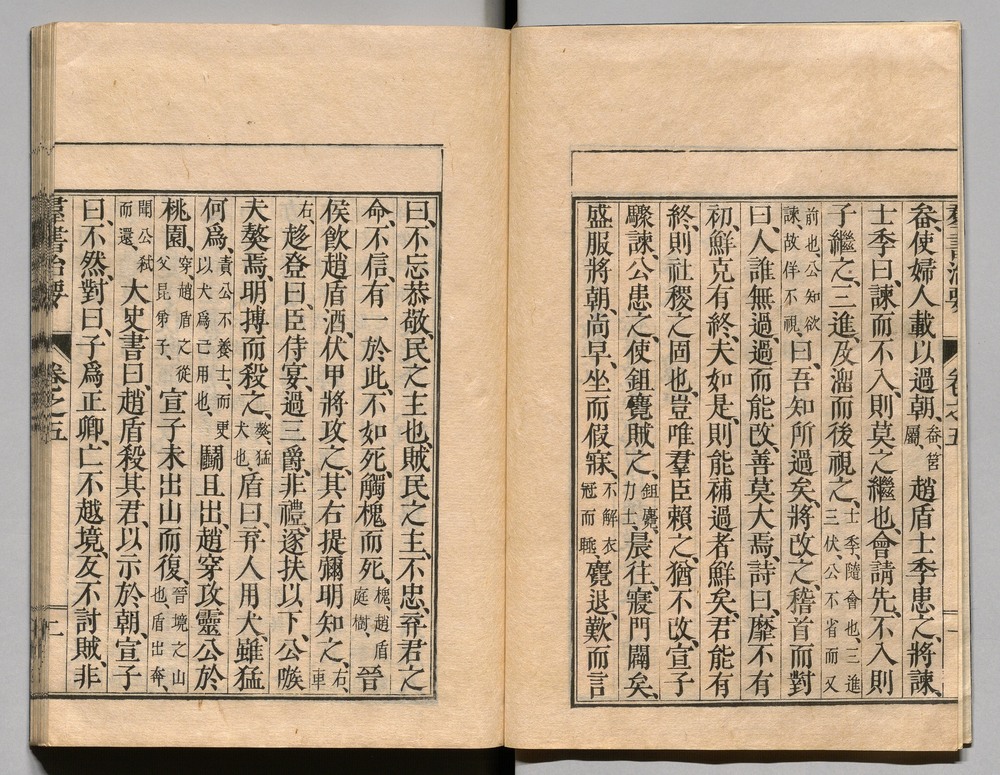 羣書治要 卷之五 一
畚、使婦人載以過朝、畚筥屬、趙盾士季患之、將諫、
士季曰、諫而不入、則莫之繼也、會請先、不入則
子繼之、三進及溜而後視之、士季、隨會也、三進三伏、公不省而又
前也、公知欲諫、故佯不視、曰、吾知所過矣、將改之、稽首而對
曰、人誰無過、過而能改、善莫大焉、詩曰、靡不有
初、鮮克有終、夫如是、則能補過者鮮矣、君能有
終、則社稷之固也、豈唯羣臣賴之、猶不改、宣子
驟諫、公患之、使鉏麑賊之、鉏麑、力士、晨往、寢門闢矣、
盛服將朝、尚早、坐而假寐、不解衣冠而睡、麑退、歎而言
曰、不忘恭敬、民之主也、賊民之主、不忠、弃君之
命、不信、有一於此、不如死、觸槐而死、槐、趙盾庭樹、晉
侯飮趙盾酒、伏甲將攻之、其右提彌明知之、右、車
右、趍登曰、臣侍宴、過三爵、非禮、遂扶以下、公嗾
夫獒焉、明搏而殺之、獒、猛犬也、盾曰、弃人用犬、雖猛
何爲、責公不養士、而更以犬爲己用也、鬭且出、趙穿攻靈公於
桃園、穿、趙盾之從父昆弟子、宣子未出山而復、晉境之山也、盾出奔、
聞公弒而還、大史書曰、趙盾殺其君、以示於朝、宣子
曰、不然、對曰、子爲正卿、亡不越境、反不討賊、非
羣書治要 卷之五 二